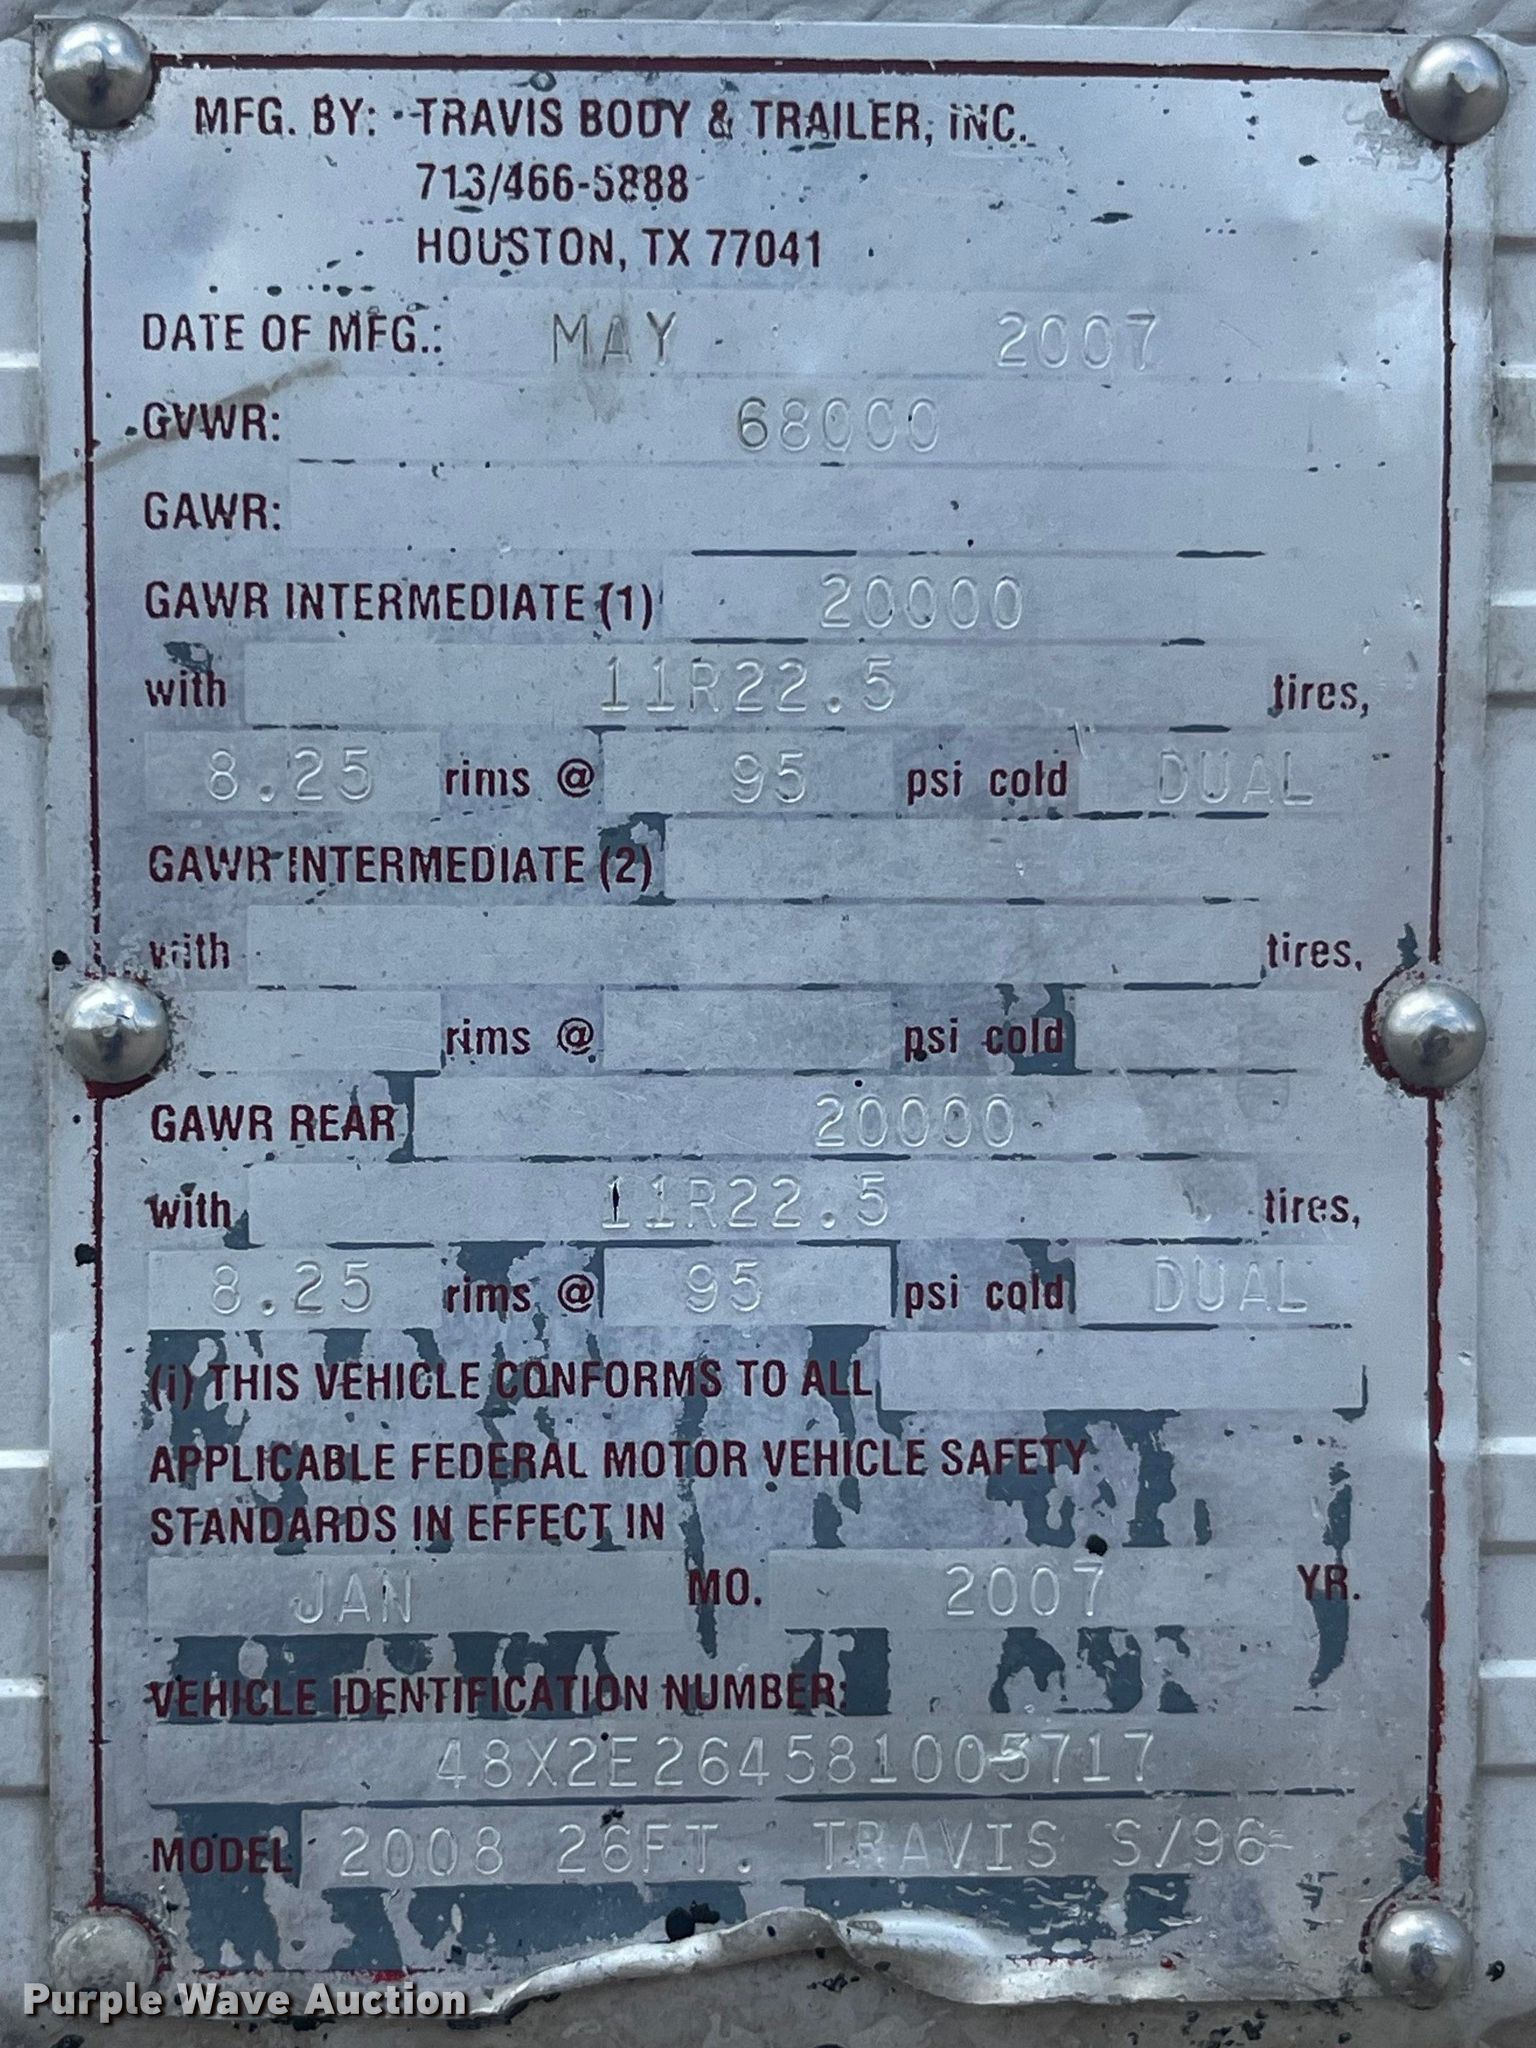 MFG. BY: TRAVIS BODY & TRAILER, INC.
713/466-5888
HOUSTON, TX 77041
DATE OF MFG.: MAY 2007
GVWR: 68000
GAWR:
GAWR INTERMEDIATE (1) 20000
with 11R22.5 tires,
8.25 rims @ 95 psi cold DUAL
GAWR INTERMEDIATE (2)
with tires,
rims @ psi cold
GAWR REAR 20000
with 11R22.5 tires,
8.25 rims @ 95 psi cold DUAL
(i) THIS VEHICLE CONFORMS TO ALL
APPLICABLE FEDERAL MOTOR VEHICLE SAFETY
STANDARDS IN EFFECT IN
JAN MO. 2007 YR.
VEHICLE IDENTIFICATION NUMBER:
48X2E264581005717
MODEL 2008 26FT. TRAVIS S/96-
Purple Wave Auction